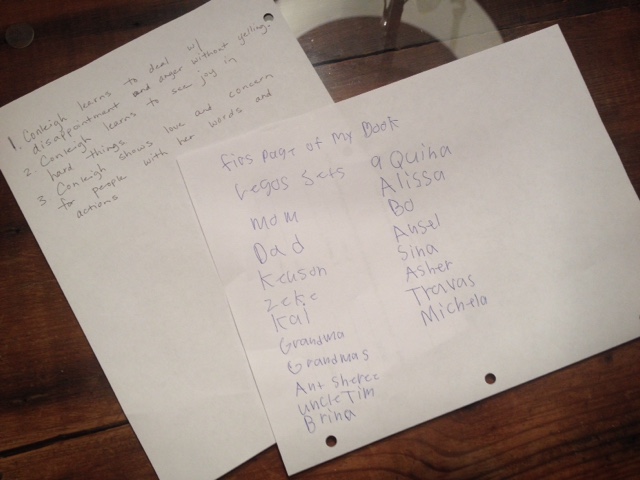 1. Conleigh learns to deal w/
disappointment and anger without yelling.
2. Conleigh learns to see joy in
hard things
3. Conleigh shows love and concern
for people with her words and
actions
firs page of my Book
Legos Sets
Mom
Dad
Keuson
Zeke
Kal
Grandma
Grandmas
Ant Sheree
uncle Tim
Brina
aQuina
Alissa
Bo
Ansel
Sina
Asher
Travas
Michela